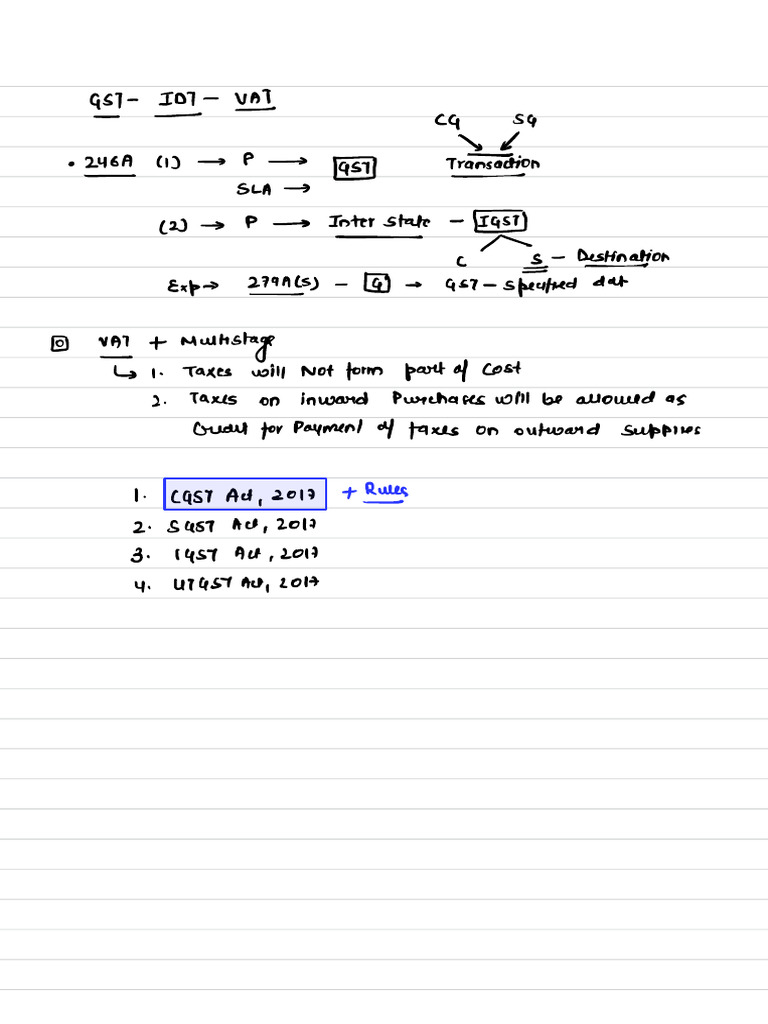 GST - IDT - VAT
CG SG
• 246A (1) → P → GST Transaction
SLA →
(2) → P → Inter state - IGST
C S - Destination
Exp → 279A(5) - G → GST - Specified dat
VAT + Multistage
↳ 1. Taxes will Not form part of cost
2. Taxes on inward Purchases will be allowed as
Credit for Payment of taxes on outward supplies
1. CGST Act, 2017 + Rules
2. SGST Act, 2017
3. IGST Act, 2017
4. UTGST Act, 2017